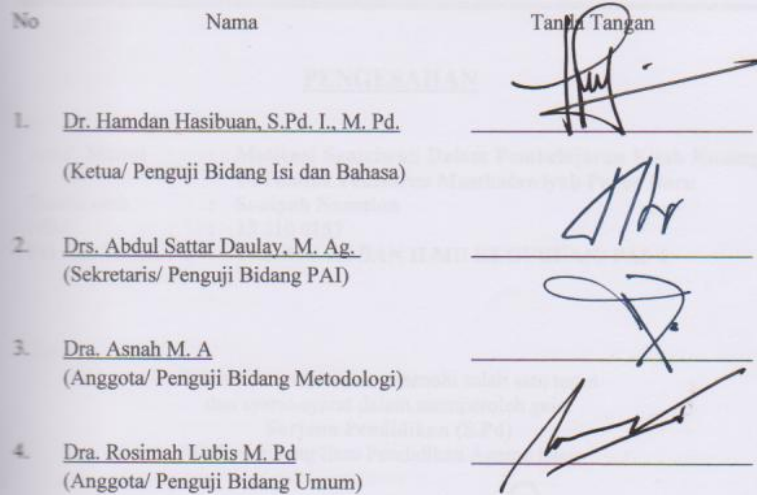 No Nama Tanda Tangan
PENGESAHAN
1. Dr. Hamdan Hasibuan, S.Pd. I., M. Pd.
(Ketua/ Penguji Bidang Isi dan Bahasa)
2. Drs. Abdul Sattar Daulay, M. Ag.
(Sekretaris/ Penguji Bidang PAI)
3. Dra. Asnah M. A
(Anggota/ Penguji Bidang Metodologi)
4. Dra. Rosimah Lubis M, Pd
(Anggota/ Penguji Bidang Umum)